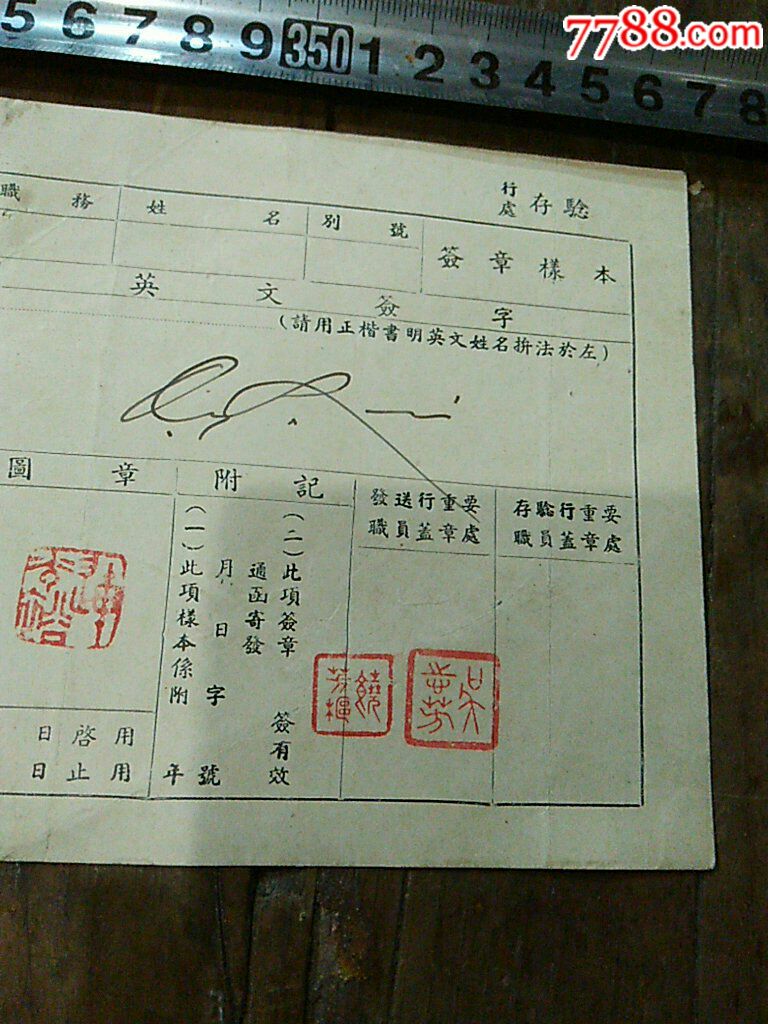 5 6 7 8 9 350 1 2 3 4 5 6 7 8
7788.com
行處存驗
職務 姓名 別號 簽章樣本
英文簽字
(請用正楷書明英文姓名拚法於左)
圖章 附記 發送行重要職員蓋章處 存驗行重要職員蓋章處
(一)此項樣本係附
月 日 字
年 號
通函寄發
(二)此項簽章
簽有效
日啓用
日止用